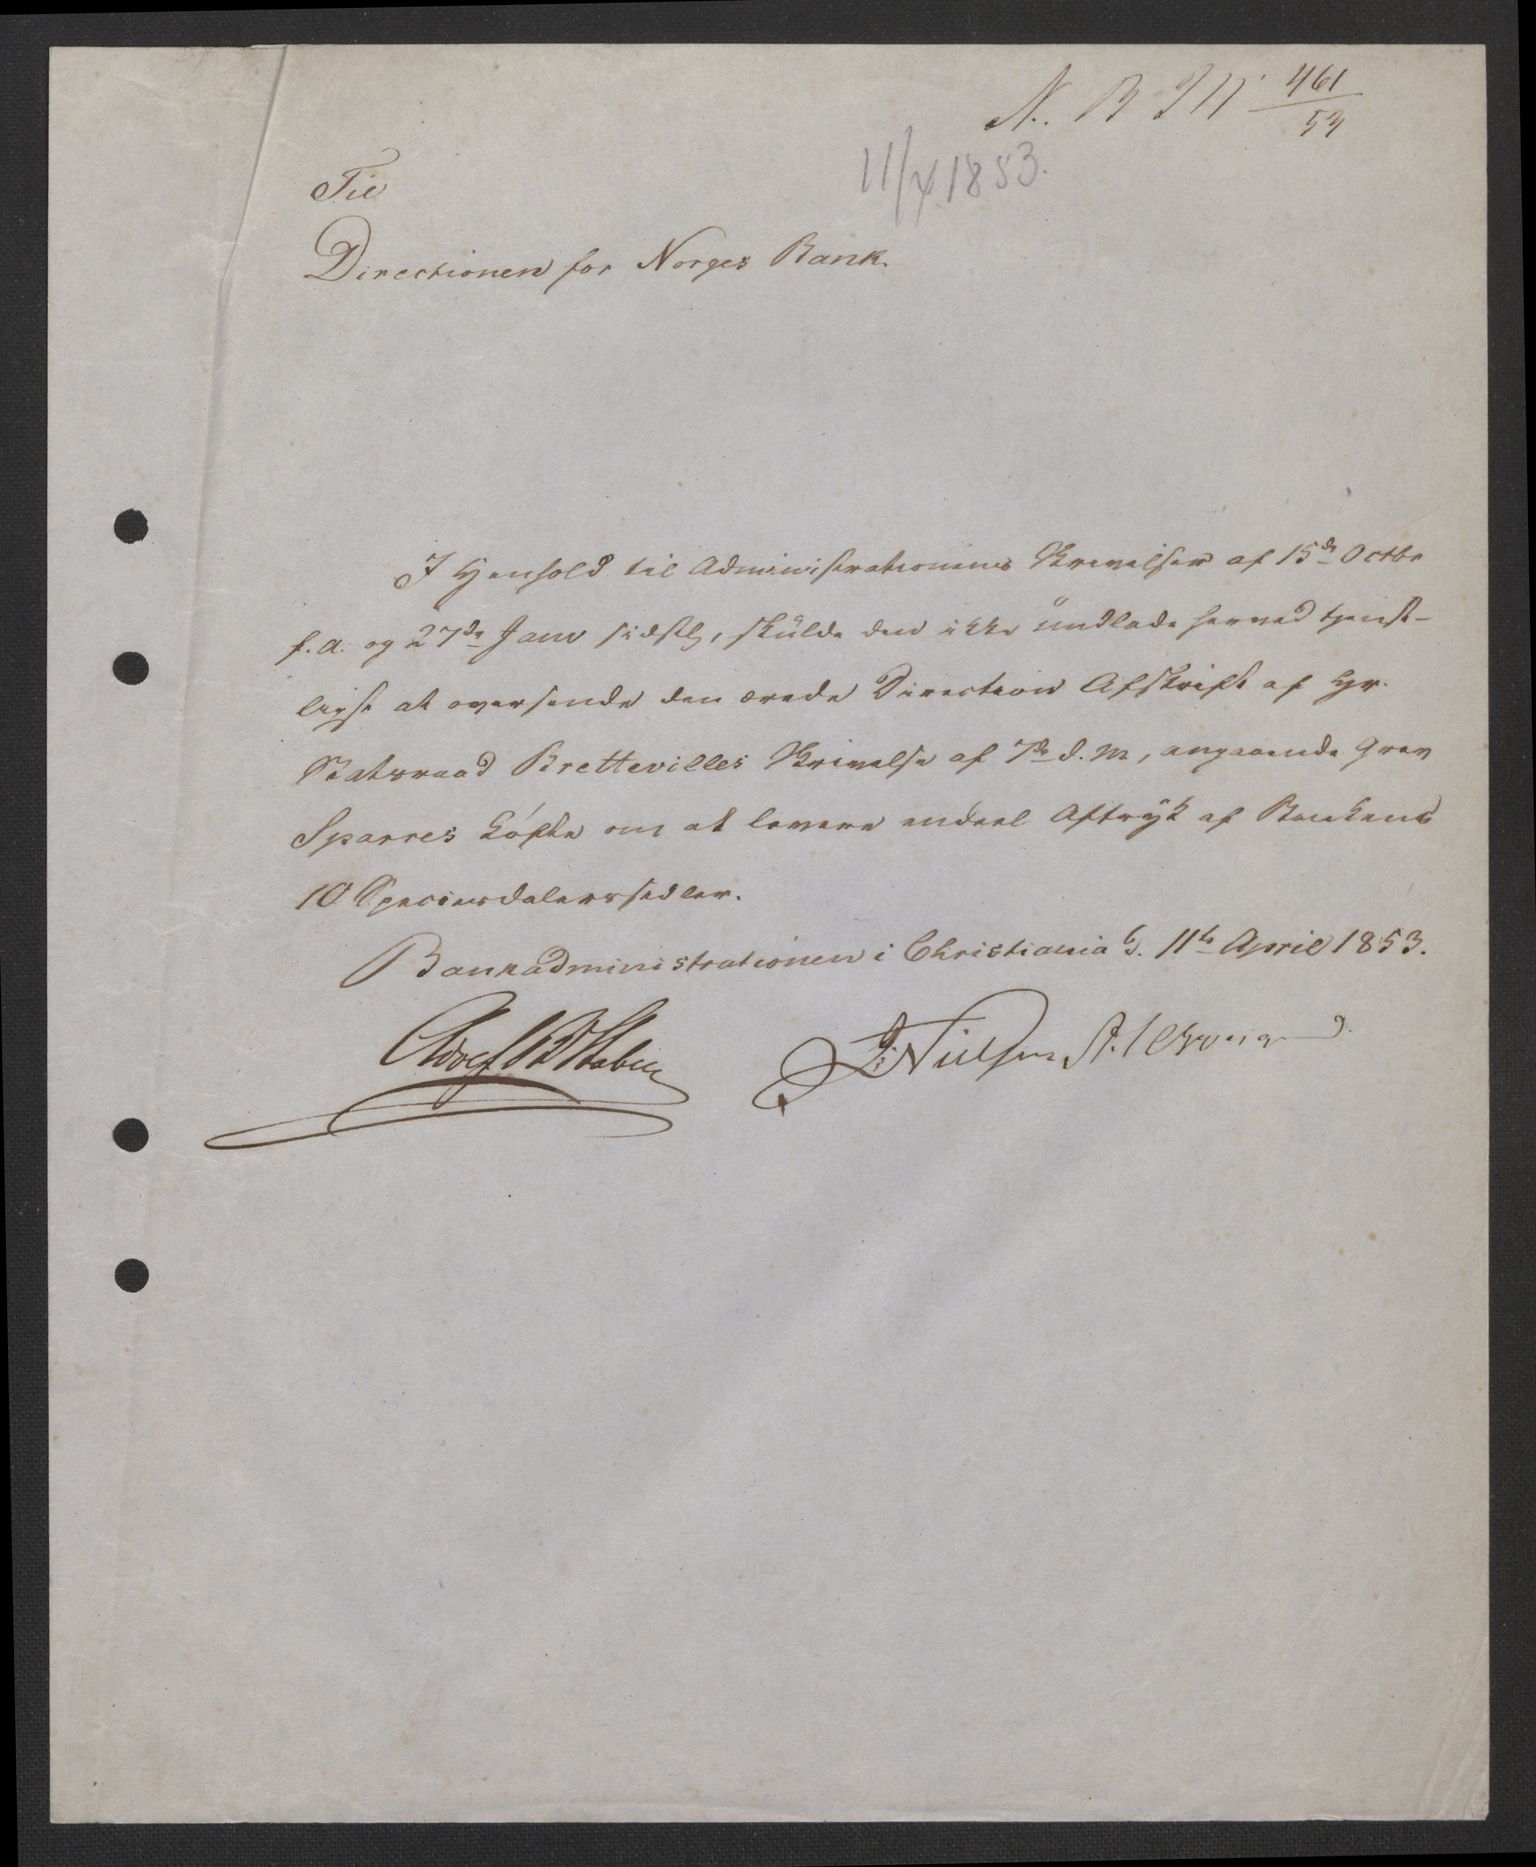 N. B. 461
53
11/4 1853.
Til
Directionen for Norges Bank.
I Henhold til Administrationens Skrivelser af 15de Octbr
f. A. og 27de Janv sidstl, skulde den ikke undlade herved tjenst-
ligst at oversende den ærede Direction Afskrift af Hr.
Statsraad Brettevilles Skrivelse af 7de d. M, angaaende Grev
Sparres Løfte om at levere endeel Aftryk af Bankens
10 Speciesdalerssedler.
Bankadministrationen i Christiania d. 11te April 1853.
Adolf B Stabell
J. Nielsen